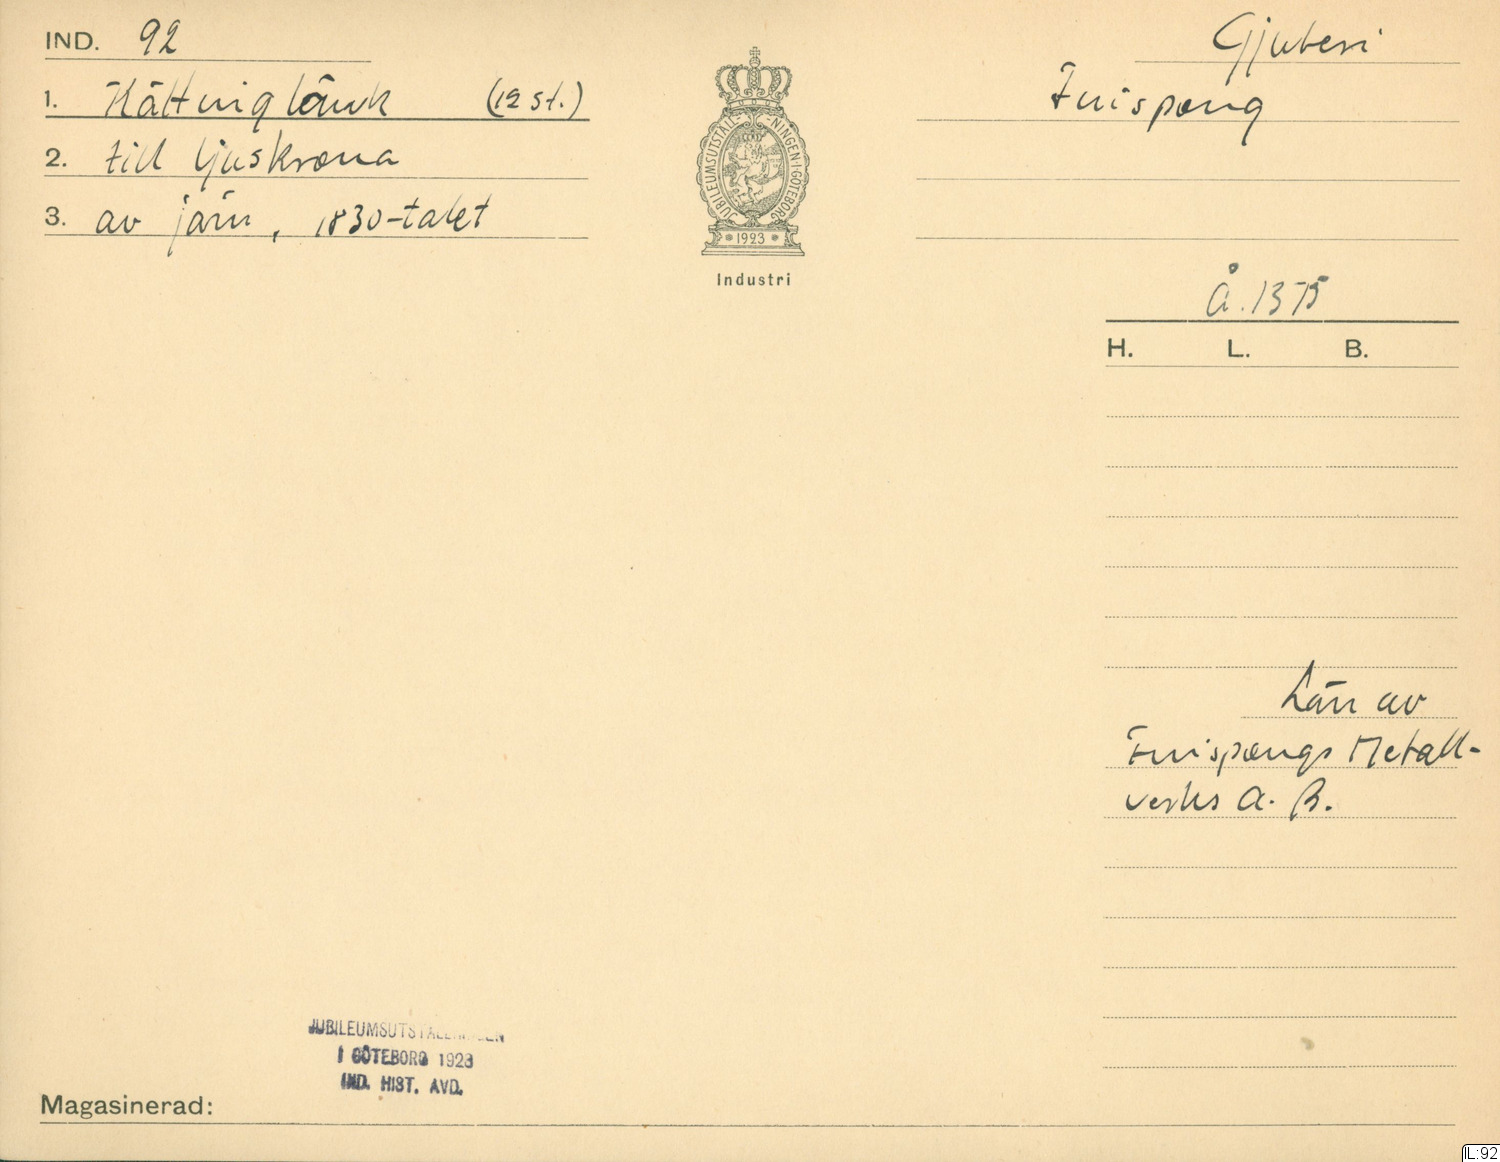 IND. 92
Gjuteri
1. Kättinglänk (12 st.)
Finspong
2. till ljuskrona
3. av järn, 1830-talet
JUBILEUMSUTSTÄLL-NINGEN·I·GÖTEBORG
1923
Industri
Å. 1375
H. L. B.
Lån av
Finspongs Metall-
verks A. B.
JUBILEUMSUTSTÄLLNINGEN
I GÖTEBORG 1923
IND. HIST. AVD.
Magasinerad:
IL:92